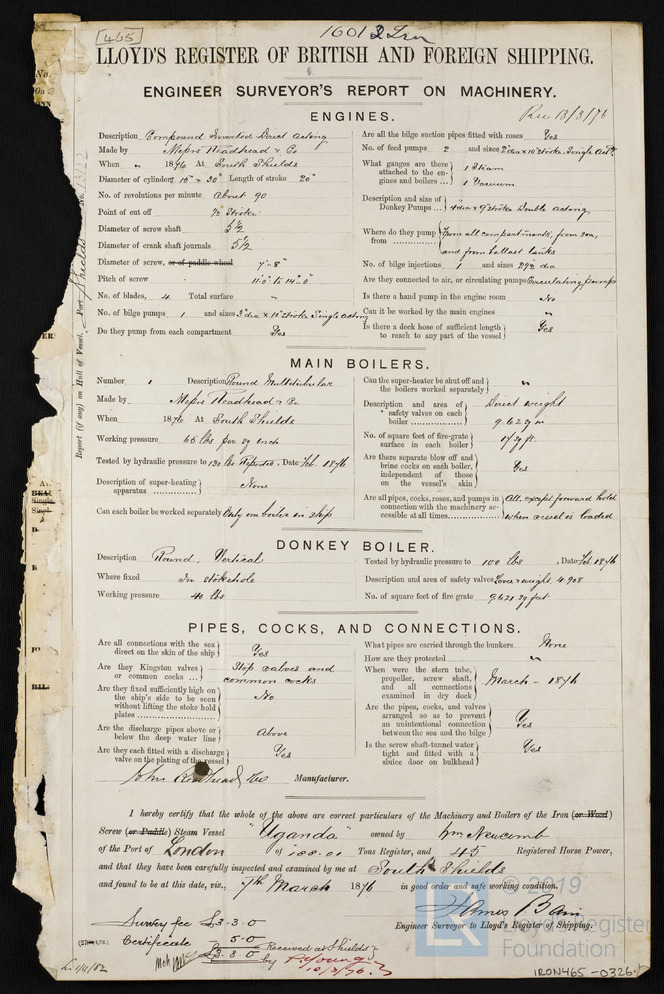 [465]
1601 Iron
LLOYD'S REGISTER OF BRITISH AND FOREIGN SHIPPING.
ENGINEER SURVEYOR'S REPORT ON MACHINERY.
Rec 13/3/76
ENGINES.
Description Compound Inverted Direct Acting
Made by Messrs Readhead & Co
When " 1876 At South Shields
Diameter of cylinders 15" & 30" Length of stroke 20"
No. of revolutions per minute About 90
Point of cut off 1/2 Stroke
Diameter of screw shaft 5 1/2
Diameter of crank shaft journals 5 1/2
Diameter of screw, or of paddle wheel 7'-8"
Pitch of screw 11'.0" to 14'.0"
No. of blades, 4 Total surface "
No. of bilge pumps 1 and sizes 3"dia x 10"stroke Single Acting
Do they pump from each compartment Yes
Are all the bilge suction pipes fitted with roses Yes
No. of feed pumps 2 and sizes 2"dia x 10"stroke. Single Actg.
What gauges are there attached to the engines and boilers ... 1 Steam
1 Vacuum
Description and size of Donkey Pumps ... 4"dia x 9"stroke Double acting
Where do they pump from ............ From all compartments, from sea,
and from ballast tanks
No. of bilge injections 1 and sizes 2 1/2 dia
Are they connected to air, or circulating pumps Circulating pumps
Is there a hand pump in the engine room No
Can it be worked by the main engines "
Is there a deck hose of sufficient length to reach to any part of the vessel Yes
MAIN BOILERS.
Number 1 Description Round Multitubular
Made by Messrs Readhead & Co.
When 1876 At South Shields
Working pressure 65 lbs per sq inch
Tested by hydraulic pressure to 130 lbs Date Feb. 1876
Description of super-heating apparatus ............ None
Can each boiler be worked separately Only one boiler in ship
Can the super-heater be shut off and the boilers worked separately "
Description and area of safety valves on each boiler ............ Direct weight
9.62 sq in
No. of square feet of fire-grate surface in each boiler
Are there separate blow off and brine cocks on each boiler, independent of those on the vessel's skin Yes
Are all pipes, cocks, roses, and pumps in connection with the machinery accessible at all times......... All, except forward hold
when vessel is loaded
DONKEY BOILER.
Description Round, Vertical
Where fixed In stokehole
Working pressure 40 lbs
Tested by hydraulic pressure to 100 lbs , Date Feb 1876
Description and area of safety valves Lever & weight. 4.908
No. of square feet of fire grate 9.621 sq feet
PIPES, COCKS, AND CONNECTIONS.
Are all connections with the sea direct on the skin of the ship Yes
Are they Kingston valves or common cocks ... Stop valves and
common cocks
Are they fixed sufficiently high on the ship's side to be seen without lifting the stoke hold plates ............ No
Are the discharge pipes above or below the deep water line Above
Are they each fitted with a discharge valve on the plating of the vessel Yes
What pipes are carried through the bunkers None
How are they protected "
When were the stern tube, propeller, screw shaft, and all connections examined in dry dock March - 1876
Are the pipes, cocks, and valves arranged so as to prevent an unintentional connection between the sea and the bilge Yes
Is the screw shaft-tunnel water tight and fitted with a sluice door on bulkhead Yes
John Readhead & Co Manufacturer.
I hereby certify that the whole of the above are correct particulars of the Machinery and Boilers of the Iron (or Wood)
Screw (or Paddle) Steam Vessel "Uganda" owned by Wm Newcomb
of the Port of London of Tons Register, and 45 Registered Horse Power,
and that they have been carefully inspected and examined by me at South Shields
and found to be at this date, viz., 7th March 1876 in good order and safe working condition.
James Bain
Engineer Surveyor to Lloyd's Register of Shipping.
Survey fee £3-3.0
Certificate 5.0
£3.8.0
Received at Shields
by F. Young
10/3/76.
IRON465-0326
© 2019
Lloyd's Register
Foundation
Report (if any) on Hull of Vessel. Port Shields No.